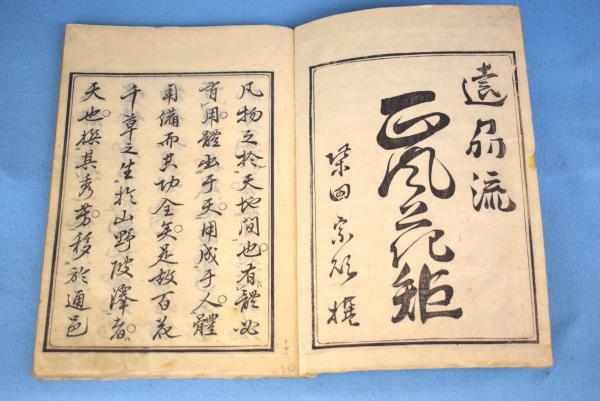 遠州流
正風花矩
柴田宗欣撰
凡物之於天地間也有體必
有用體出于天用成于人體
用備而其功全矣是故百花
千草之生於山野陂澤者
天也採其秀芳移於通邑